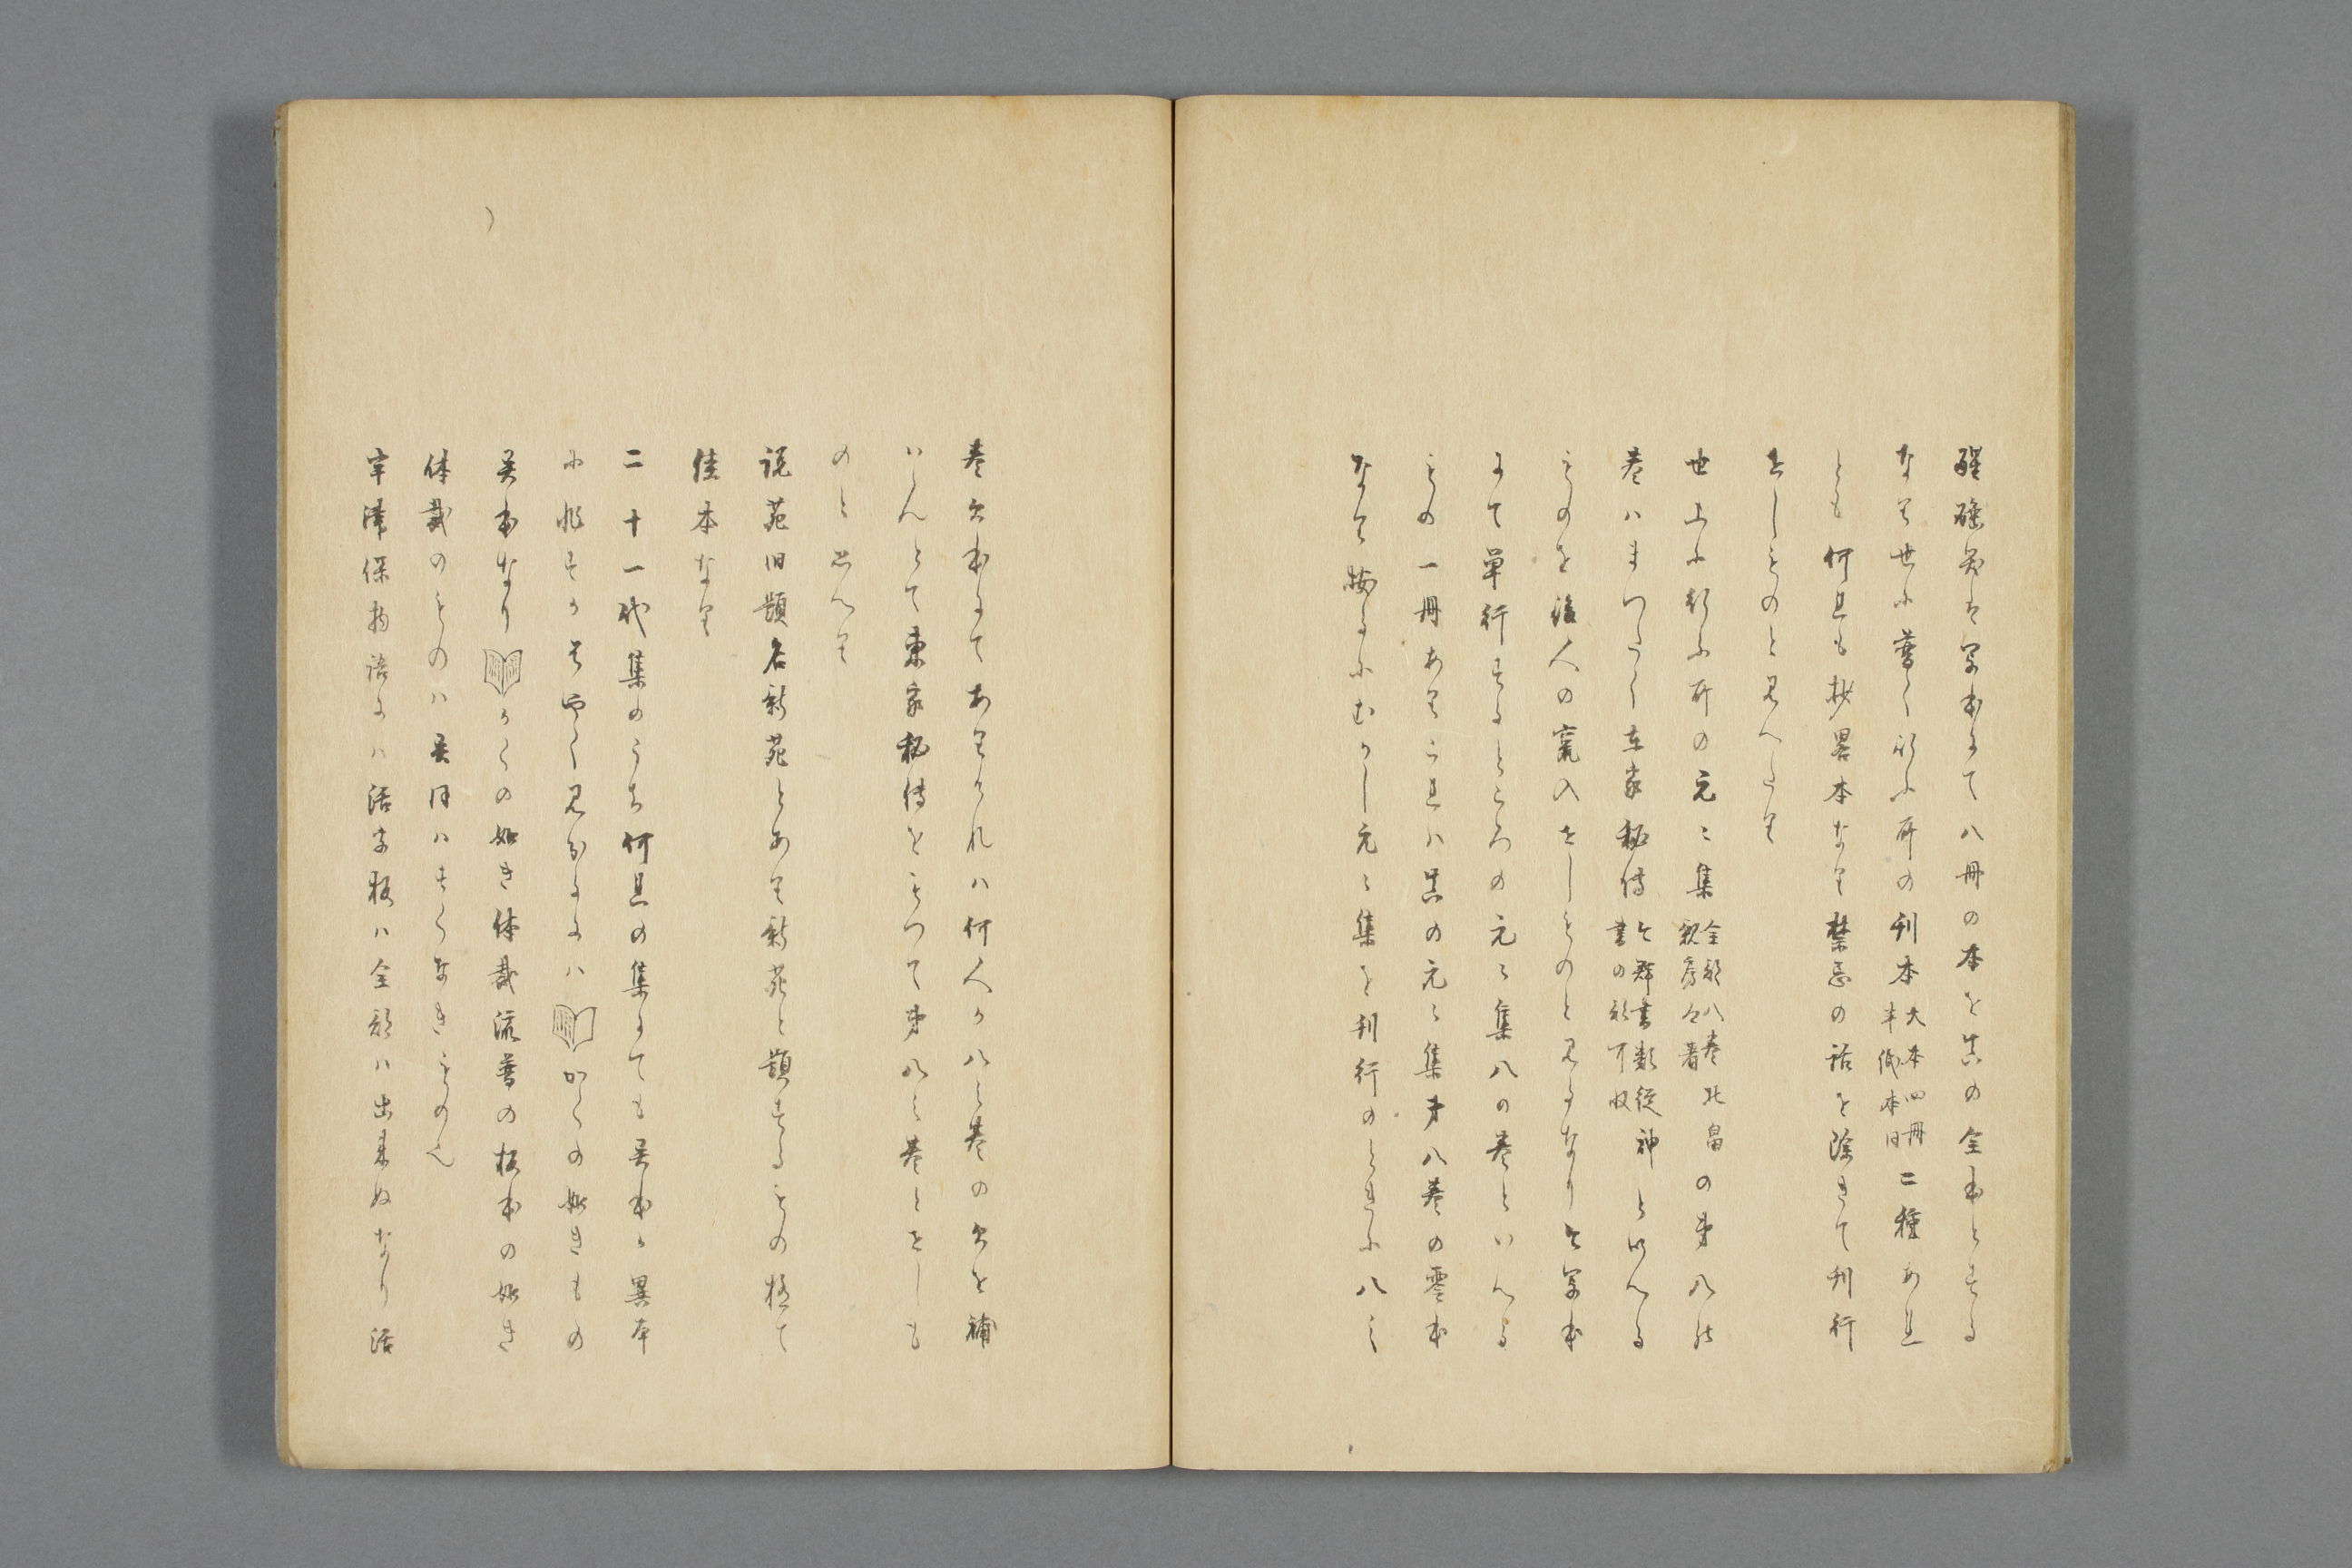 醒睡笑は写本にて八冊の本を其の全本とする
なり世に普く行ふ所の刊本大本四冊半紙本同二種あれ
とも何且も抄畧本なり禁忌の話を除きて刊行
せしものと見へたり
世上に行ふ所の元々集全部八巻北畠親房公著の第八の
巻はまつたく東家秘伝今群書類従神書の部可収と以へる
ものを後人の竄入せしものと見るなり今写本
にて単行するところの元々集八の巻といへる
もの一冊あり之且ハ其の元々集第八巻の零本
なり按るにむかし元々集を刊行のときに八之
巻欠本にてありけれハ何人か八之巻の欠を補
ハんとて東家秘傳をもつて第八之巻とせしも
のと思へり
説苑旧題名新苑とあり新苑と題するもの極て
佳本なり
二十一代集のうち何且の集にても異本と異本
に非すかを早く見分るにハかくの如きもの
異本なりかくの如き体裁流普の板本の如き
体裁のものハ異同ハすくなきものへ
宇津保物語にハ活字板ハ全部ハ出来ぬなり活